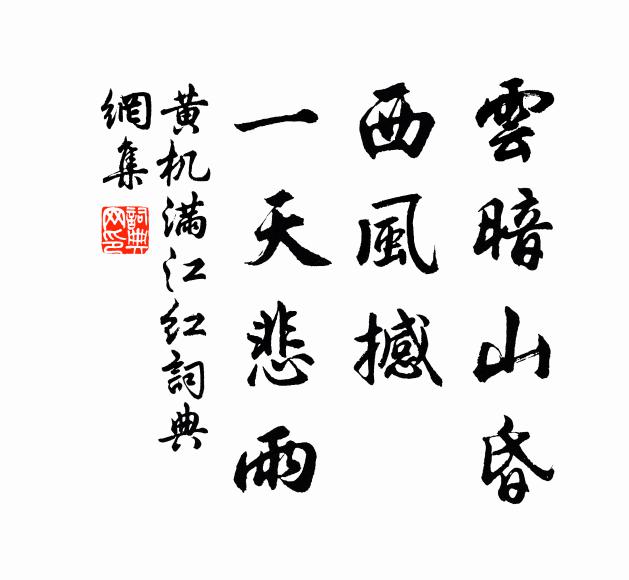 雲暗山昏
西風撼
一天悲雨
黄机满江红詞典
網集
詞典
网印